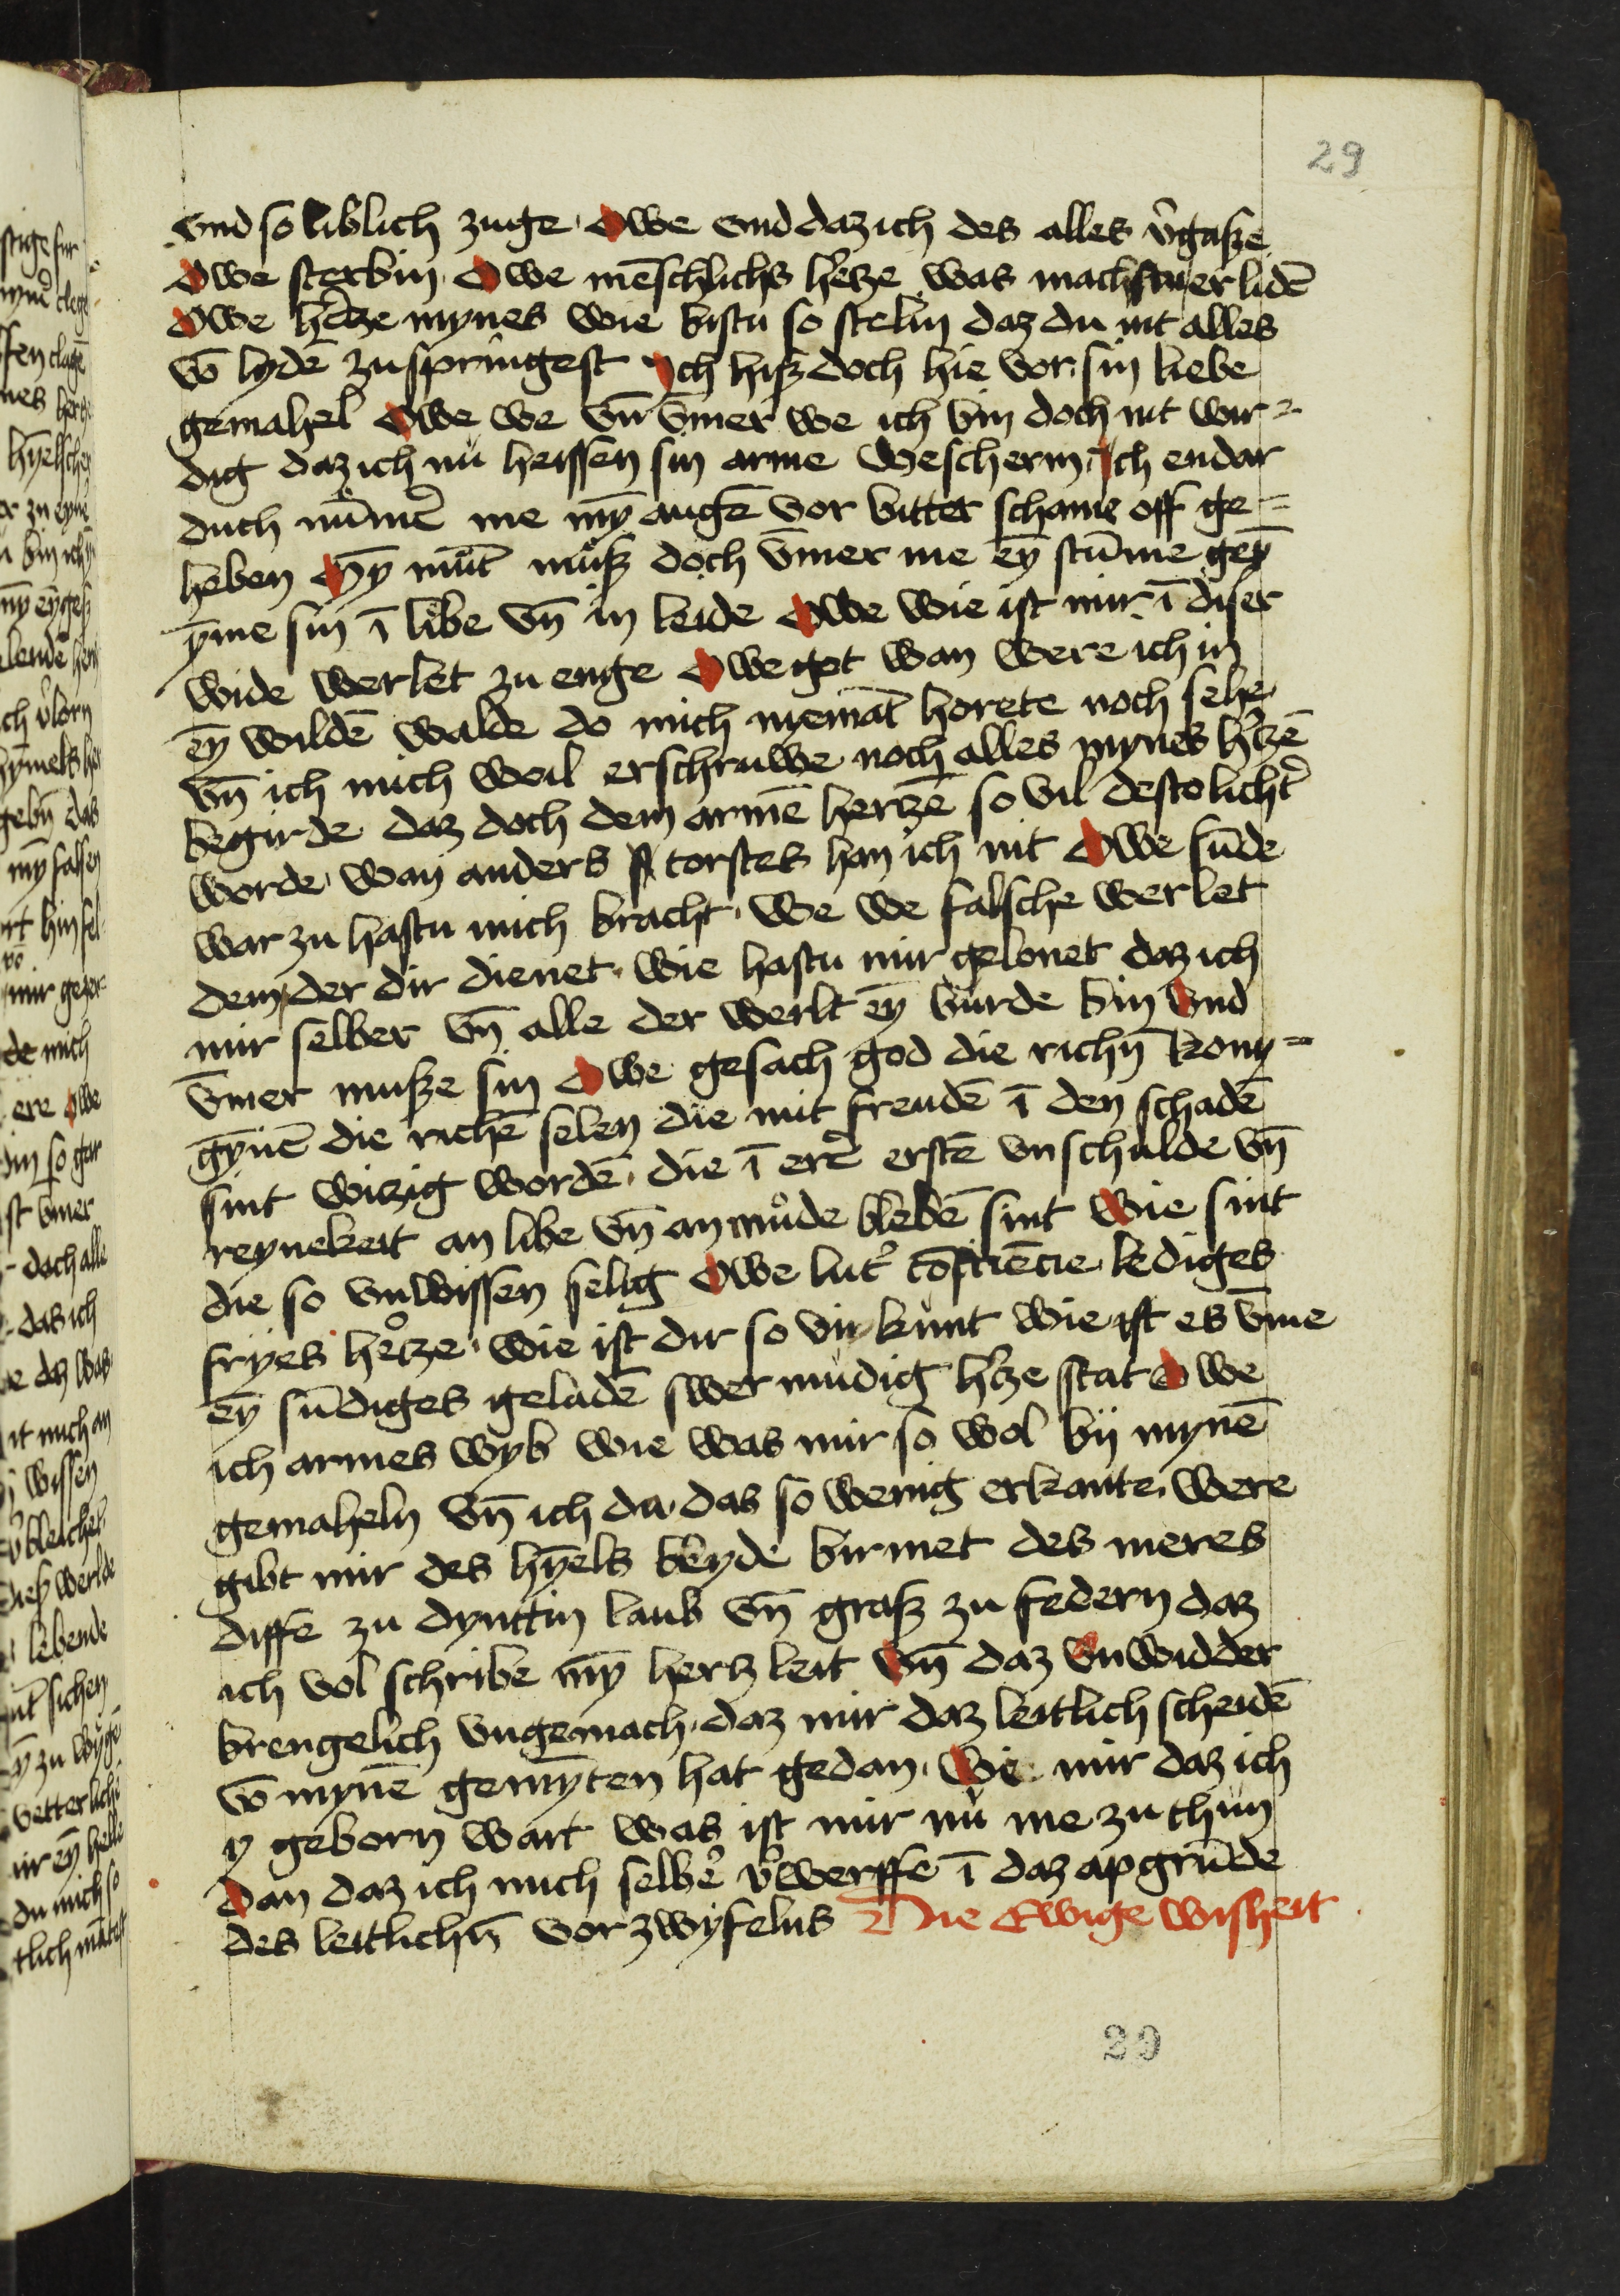 29
vnd so liblich zuge · Owe vnd daz ich des alles v̉gasze
Owe sterbin · Owe mēschlichs h̉tze was machstu erlidē
Owe h̉tze mynes wie bistu so stelin daz du nit alles
vō lydē zu springest Ich hisz doch hie vor sin liebe
gemahel Owe we vn̄ v̄mer we ich bin doch nit wir=
dig daz ich nu heissen sin arme wescherin Ich endar
duch nūmē me mȳ augē vor bitter schame off ge=
heben Mȳ mūt musz doch v̄mer me eȳ stūme geȳ
yme sin ī libe vn̄ in leide Owe wie ist mir ī diser
wide werlet zu enge Owe got wan were ich in
eȳ wildē walde do mich nyemāt horete noch sehe
vn̄ ich mich wol erschruwe noch alles mynes h̉tzē
begirde daz doch dem armē hertzē so vil desto licht̉
worde wan anders torstes han ich nit Owe sūde
war zu hastu mich bracht · we we falsche werlet
dem der dir dienet · wie hastu mir gelonet daz ich
mir selber vn̄ alle der werlt eȳ burde bin vnd
v̄mer musze sin Owe gesach god die richn̄ kony=
gynē die richē selen die mit freudē ī den schadē
sint witzig wordē · die ī erē erstē vnschulde vn̄
reynekeit an libe vn̄ an mude blebē sint wie sint
die so vnwissen selig Owe lut̉ cōsciēcie lediges
fryes h̉tze · wie ist dir so vnkunt wie ist es v̄me
eȳ sūdiges geladē swer mudig h̉tze stat Owe
ich armes wyb wie was mir so wol bij mynē
gemaheln vn̄ ich du das so wenig erkante · were
gibt mir des hȳels breyde birmet des meres
diffe zu dynttin laub vn̄ grasz zu federn daz
ich vol schribe mȳ hertz leit vn̄ daz vnwidder
brengelich vngemach · daz mir daz leitlich scheidē
vō mynē gemynten hat gedan · we mir daz ich
y geborn wart was ist mir nu me zu thun
dan daz ich mich selb̉ v̉werffe ī daz apgrūde
des leitlichn̄ vorzwyfelns Die Ewige wisheit
29